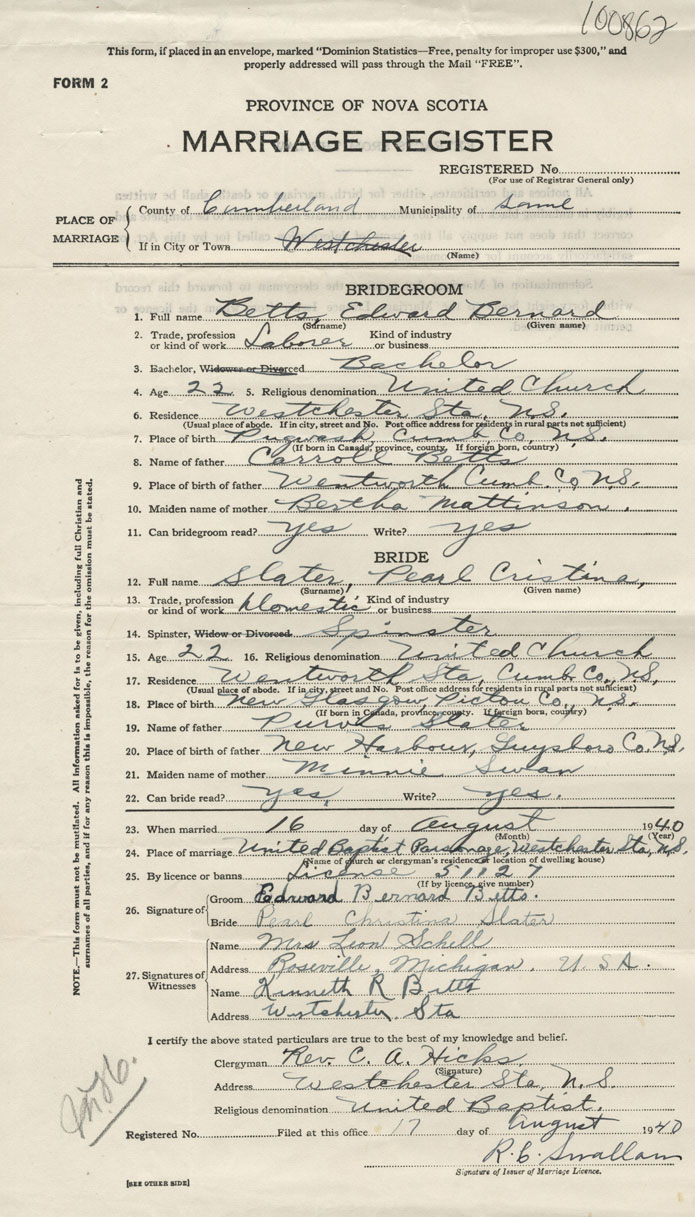 100862
This form, if placed in an envelope, marked "Dominion Statistics—Free, penalty for improper use $300," and
properly addressed will pass through the Mail "FREE".
FORM 2
PROVINCE OF NOVA SCOTIA
MARRIAGE REGISTER
REGISTERED No.
(For use of Registrar General only)
PLACE OF MARRIAGE
County of Cumberland Municipality of same
If in City or Town Westchester
(Name)
BRIDEGROOM
1. Full name Betts, Edward Bernard
(Surname) (Given name)
2. Trade, profession or kind of work Laborer Kind of industry or business
3. Bachelor, Widower or Divorced Bachelor
4. Age 22 5. Religious denomination United Church
6. Residence Westchester Sta, N.S.
(Usual place of abode. If in city, street and No. Post office address for residents in rural parts not sufficient)
7. Place of birth Pugwash, Cumb. Co, N.S.
(If born in Canada, province, county. If foreign born, country)
8. Name of father Carroll Betts
9. Place of birth of father Wentworth Cumb. Co, N.S.
10. Maiden name of mother Bertha Mattinson.
11. Can bridegroom read? yes Write? yes
BRIDE
12. Full name Slater, Pearl Cristina,
(Surname) (Given name)
13. Trade, profession or kind of work Domestic Kind of industry or business
14. Spinster, Widow or Divorced Spinster
15. Age 22 16. Religious denomination United Church
17. Residence Wentworth Sta, Cumb. Co, N.S,
(Usual place of abode. If in city, street and No. Post office address for residents in rural parts not sufficient)
18. Place of birth New Glasgow, Pictou Co., N.S.
(If born in Canada, province, county. If foreign born, country)
19. Name of father Purvis Slater
20. Place of birth of father New Harbour, Guysboro Co. N.S.
21. Maiden name of mother Minnie Swan
22. Can bride read? yes, Write? yes.
23. When married 16 day of August 1940
(Month) (Year)
24. Place of marriage United Baptist Parsonage, Westchester Sta, N.S.
(Name of church or clergyman's residence or location of dwelling house)
25. By licence or banns License 51127
(If by licence, give number)
26. Signature of
Groom Edward Bernard Betts.
Bride Pearl Christina Slater
27. Signatures of Witnesses
Name Mrs Leon Schell
Address Roseville, Michigan. U.S.A.
Name Kenneth R Betts
Address Westchester Sta
I certify the above stated particulars are true to the best of my knowledge and belief.
Clergyman Rev. C. A. Hicks
(Signature)
Address Westchester Sta, N.S.
Religious denomination United Baptist.
Registered No. Filed at this office 17 day of August 1940
R. C. Swallam
Signature of Issuer of Marriage Licence.
[SEE OTHER SIDE]
NOTE.—This form must not be mutilated. All information asked for is to be given, including full Christian and
surnames of all parties, and if for any reason this is impossible, the reason for the omission must be stated.